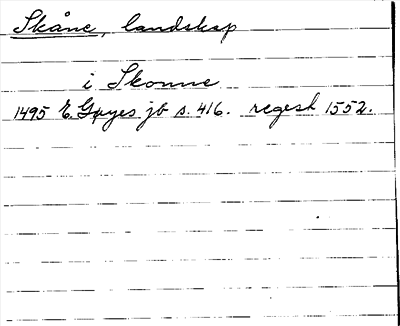 Skåne, landskap
i Skonne
1495 E. Gøyes jb s. 416. regest 1552.